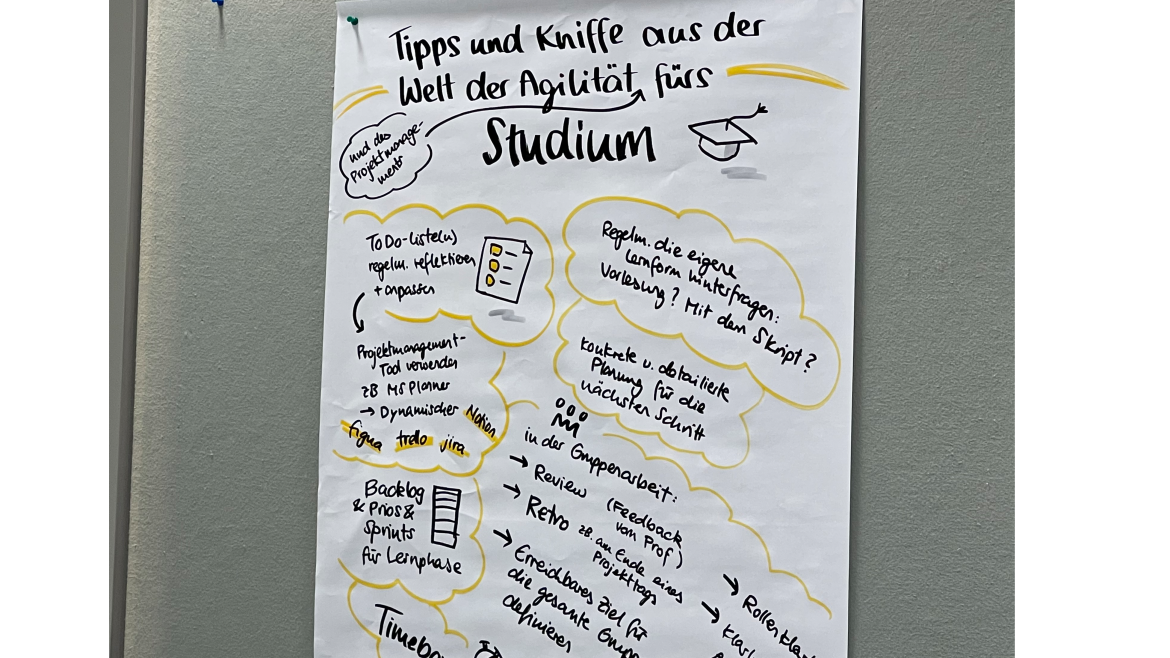 Tipps und Kniffe aus der
Welt der Agilität fürs
und des
Projektmanage-
ments
Studium
ToDo-Liste(n)
regelm. reflektieren
+ anpassen
Projektmanagement-
Tool verwenden
zB MS Planner
→ Dynamischer
Notion
figma trello jira
Backlog
& Prios &
Sprints
für Lernphase
Regelm. die eigene
Lernform hinterfragen:
Vorlesung? Mit dem Skript?
konkrete u. detaillierte
Planung für die
nächsten Schritt
in der Gruppenarbeit:
→ Review (Feedback
vom Prof)
→ Retro zB. am Ende eines
Projekttags
→ Erreichbares Ziel für
die gesamte
definieren